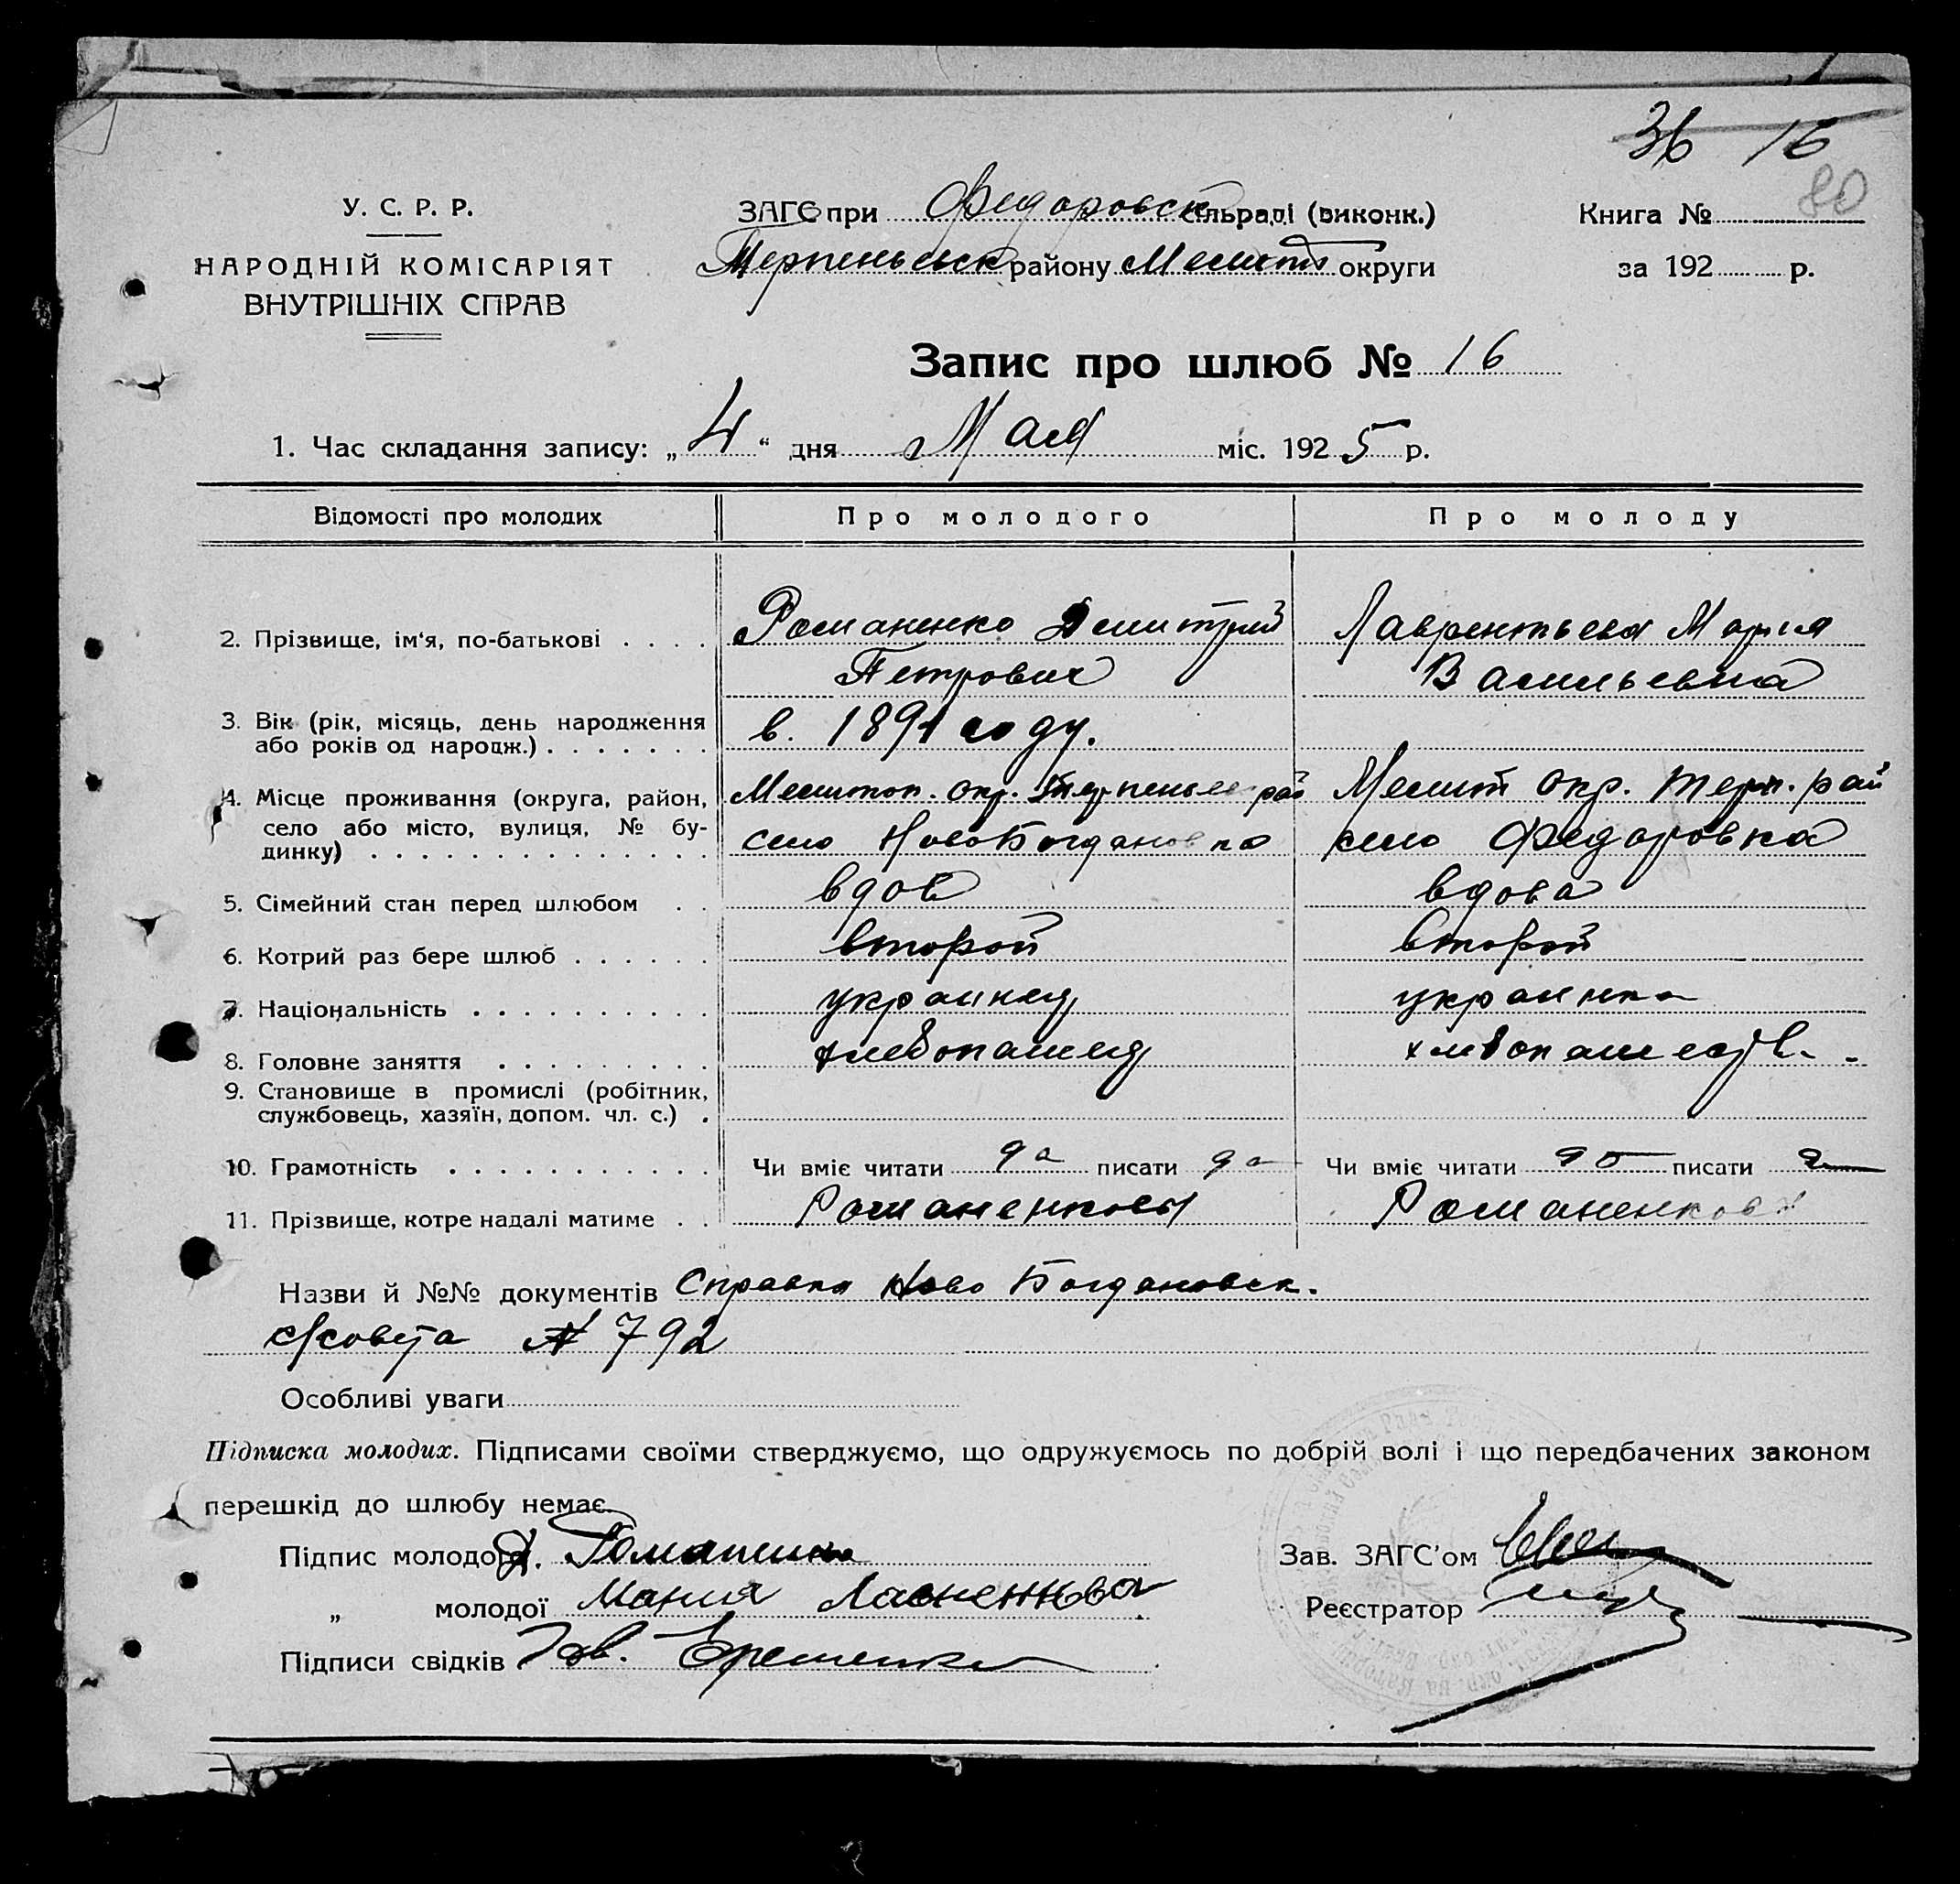 36 16
80
У. С. Р. Р.
НАРОДНІЙ КОМІСАРІЯТ
ВНУТРІШНІХ СПРАВ
ЗАГС при Федоровск сільраді (виконк.)
Терпеньевск району Мелит округи
Книга №
за 192 р.
Запис про шлюб № 16
1. Час складання запису: „4“ дня Мая міс. 1925 р.
Відомості про молодих Про молодого Про молоду
2. Прізвище, ім'я, по-батькові . . . . Романенко Дмитрий Лаврентьева Мария
Петрович Васильевна
3. Вік (рік, місяць, день народження
або років од народж.) . . . . . . . в. 1891 году.
4. Місце проживання (округа, район, Мелитоп. окр. рай Мелит окр. Терп. рай
село або місто, вулиця, № бу- село НовоБогдановка село Федоровка
динку) . . . . . . . . . . . . . .
5. Сімейний стан перед шлюбом . . вдов вдова
6. Котрий раз бере шлюб . . . . . . второй второй
7. Національність . . . . . . . . . . украинец украинка
8. Головне заняття . . . . . . . . . хлебопашец
9. Становище в промислі (робітник,
службовець, хазяїн, допом. чл. с.) .
10. Грамотність . . . . . . . . . . . Чи вміє читати да писати да Чи вміє читати да писати
11. Прізвище, котре надалі матиме . . Романенковы Романенкова
Назви й №№ документів Справка Ново Богдановск.
с/совета № 792
Особливі уваги
Підписка молодих. Підписами своїми стверджуємо, що одружуємось по добрій волі і що передбачених законом
перешкід до шлюбу немає.
Підпис молодого Д. Романенко
„ молодої Мария
Підписи свідків Еременко
Зав. ЗАГС'ом
Реєстратор